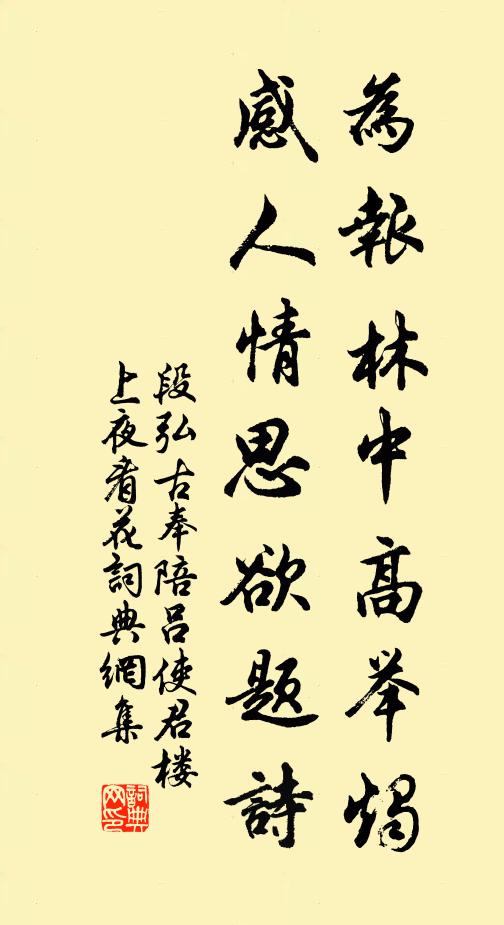 為報林中高举燭
感人情思欲題詩
段弘古奉陪吕使君楼
上夜看花詞典網集
詞典
网印